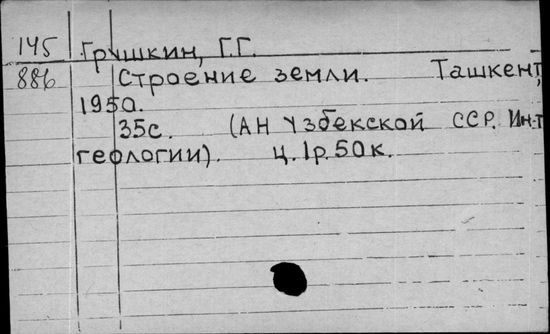 145 Грушкин, Г.Г.
886 Строение земли. Ташкент,
1950.
35с. (АН Узбекской ССР. Ин-т
геологии). ц. 1р. 50к.